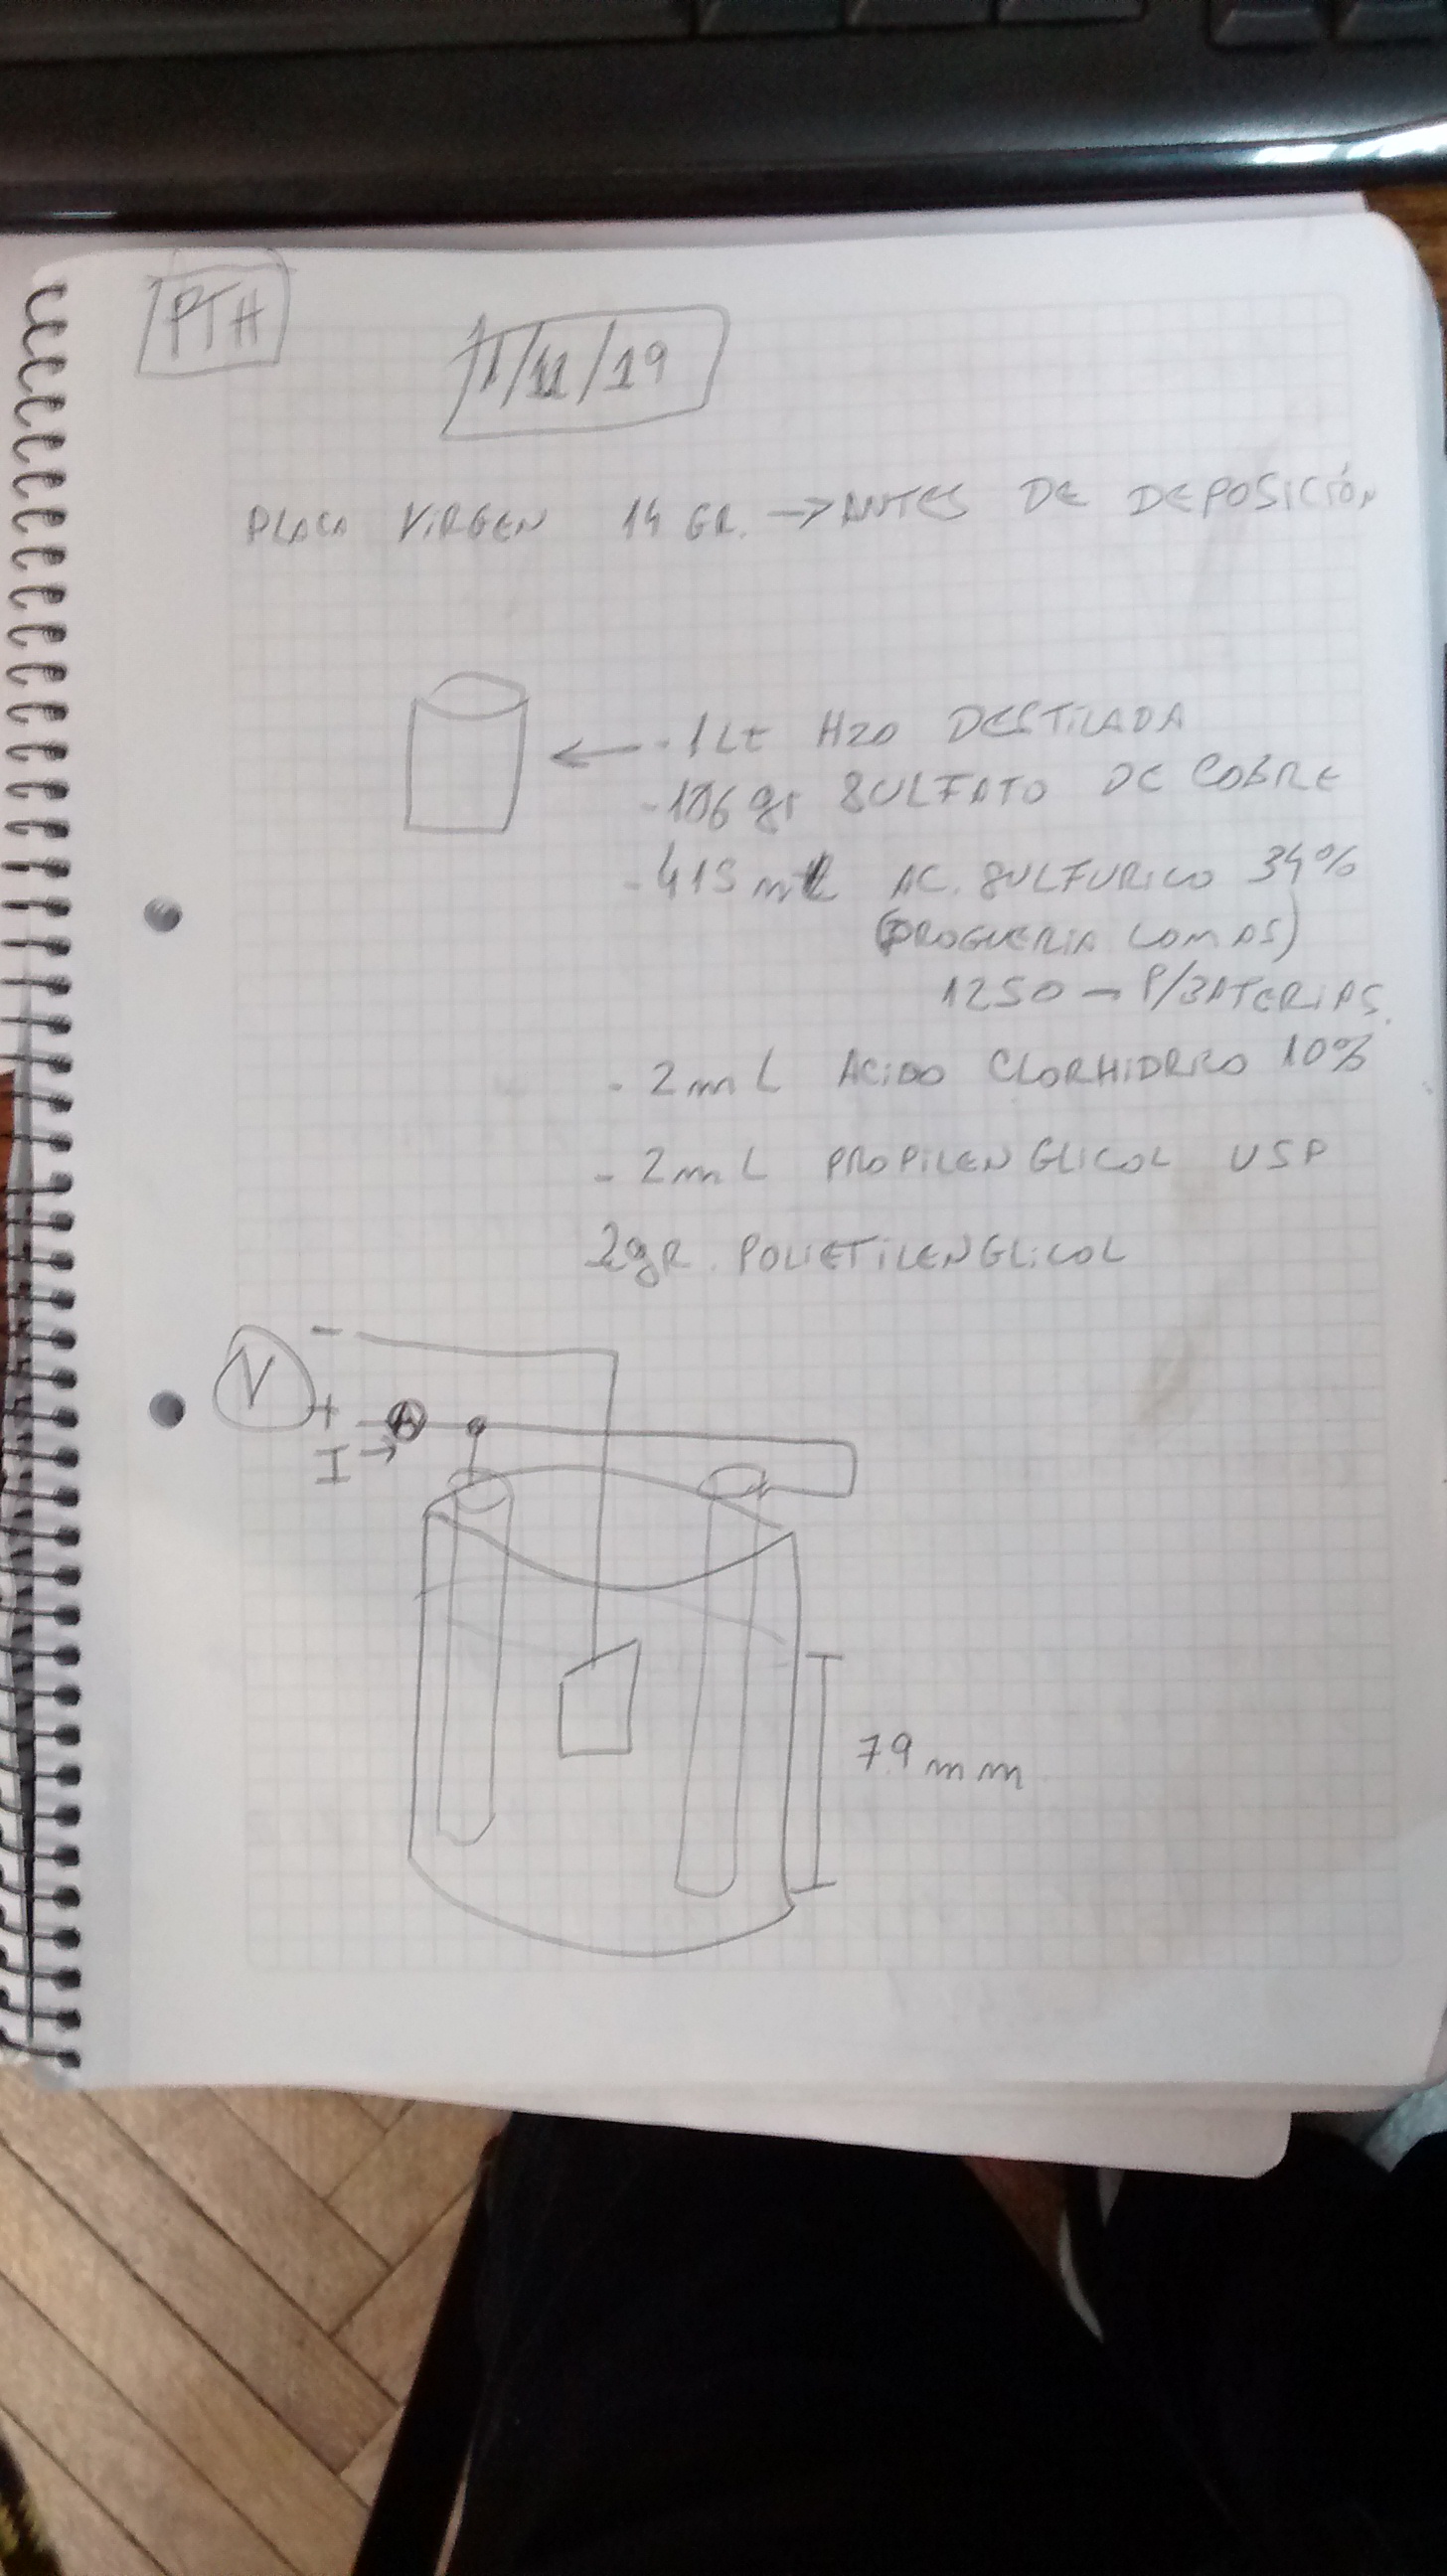 PTH
1/11/19
PLACA VIRGEN 14 GR. → ANTES DE DEPOSICIÓN
- 1 Lt H2O DESTILADA
- 106 gr SULFATO DE COBRE
- 415 mL AC. SULFURICO 34%
(DROGUERIA LOMAS)
1250 - P/BATERIAS.
- 2mL ACIDO CLORHIDRICO 10%
- 2mL PROPILENGLICOL USP
2gR. POLIETILENGLICOL
V -
+ A
I →
79 mm